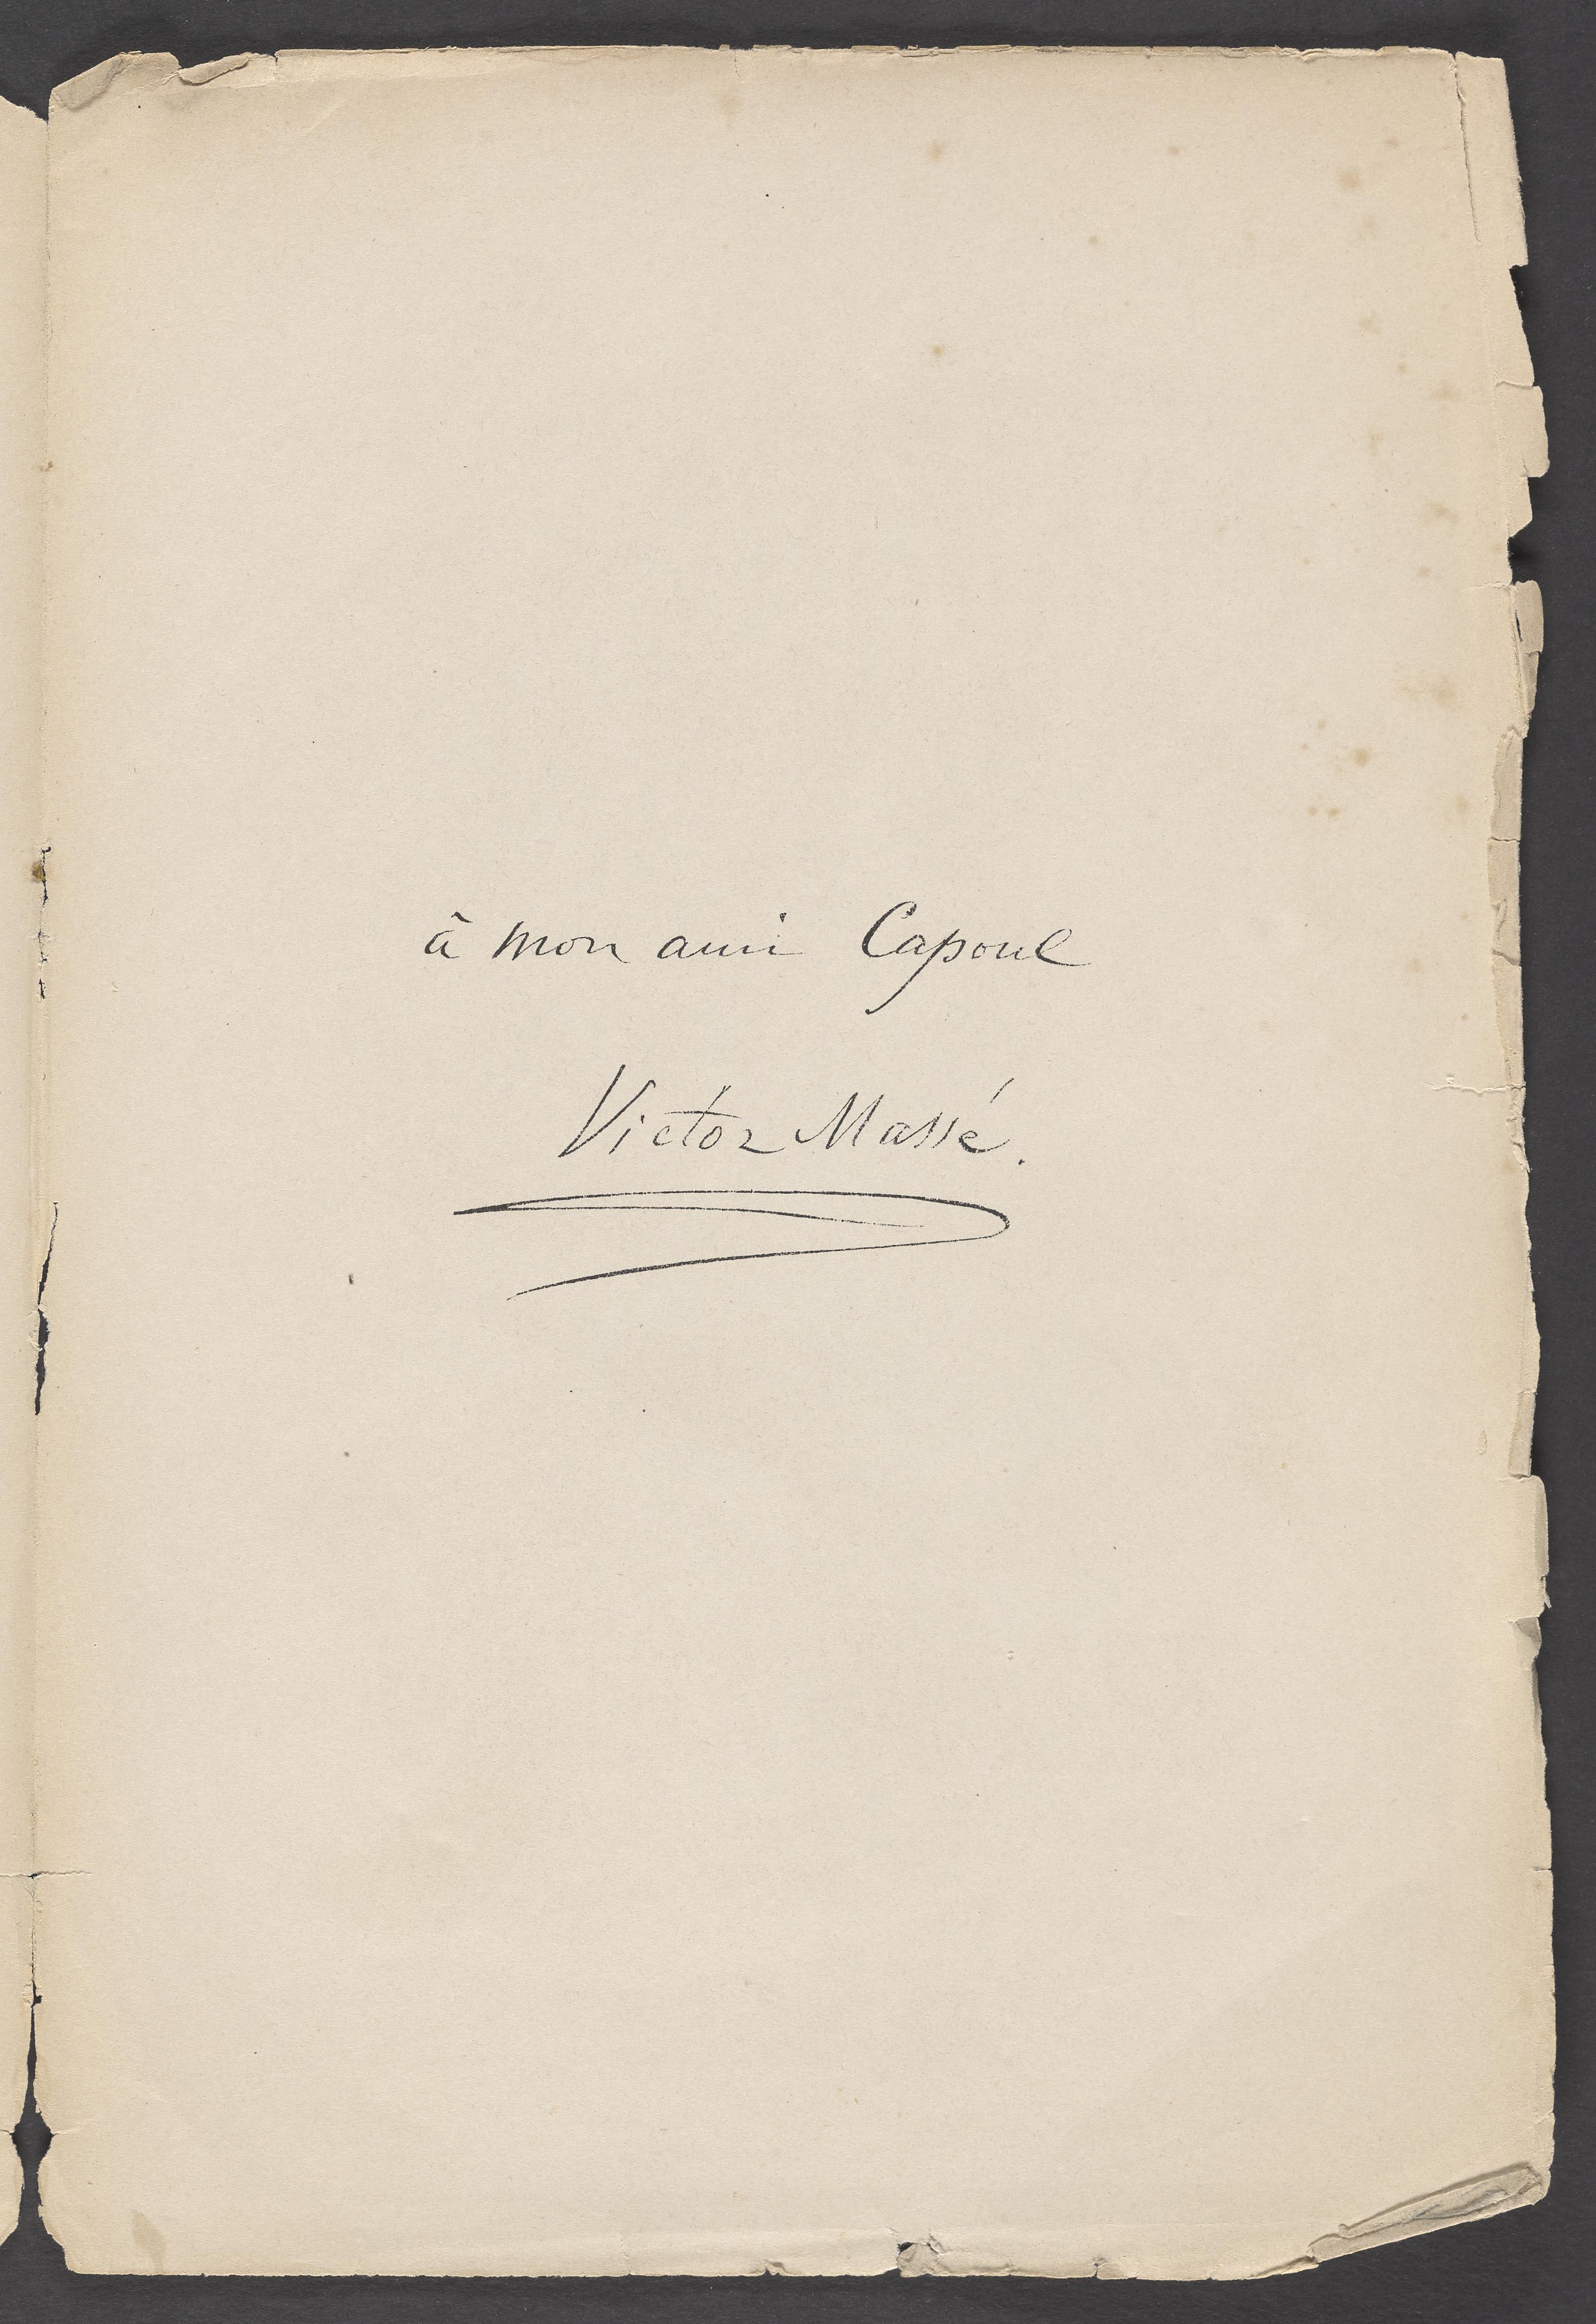 à mon ami Capoul
Victor Massé.